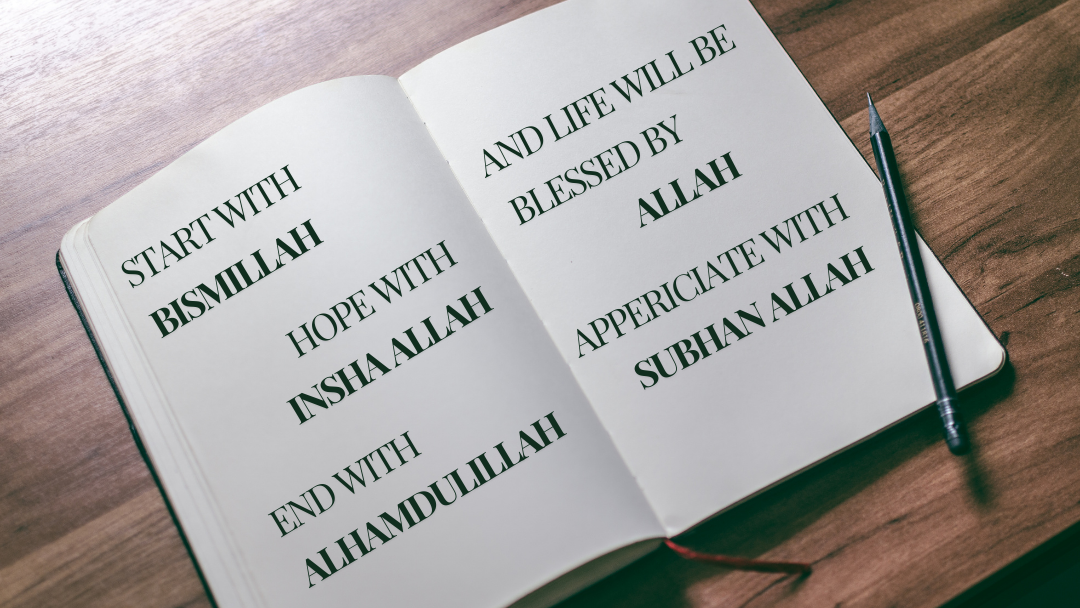 START WITH
BISMILLAH
HOPE WITH
INSHA ALLAH
END WITH
ALHAMDULILLAH
AND LIFE WILL BE
BLESSED BY
ALLAH
APPERICIATE WITH
SUBHAN ALLAH